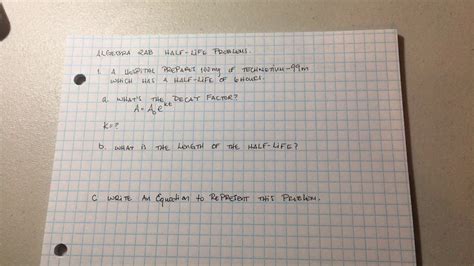 ALGEBRA 2AB HALF-LIFE PROBLEMS.
1. A HOSPITAL PREPARES 100mg OF TECHNETIUM-99m
WHICH HAS A HALF-LIFE OF 6 HOURS.
a. WHAT'S THE DECAY FACTOR?
A = A₀e^kt
K=?
b. WHAT IS THE LENGTH OF THE HALF-LIFE?
C WRITE AN EQUATION TO REPRESENT THIS PROBLEM.